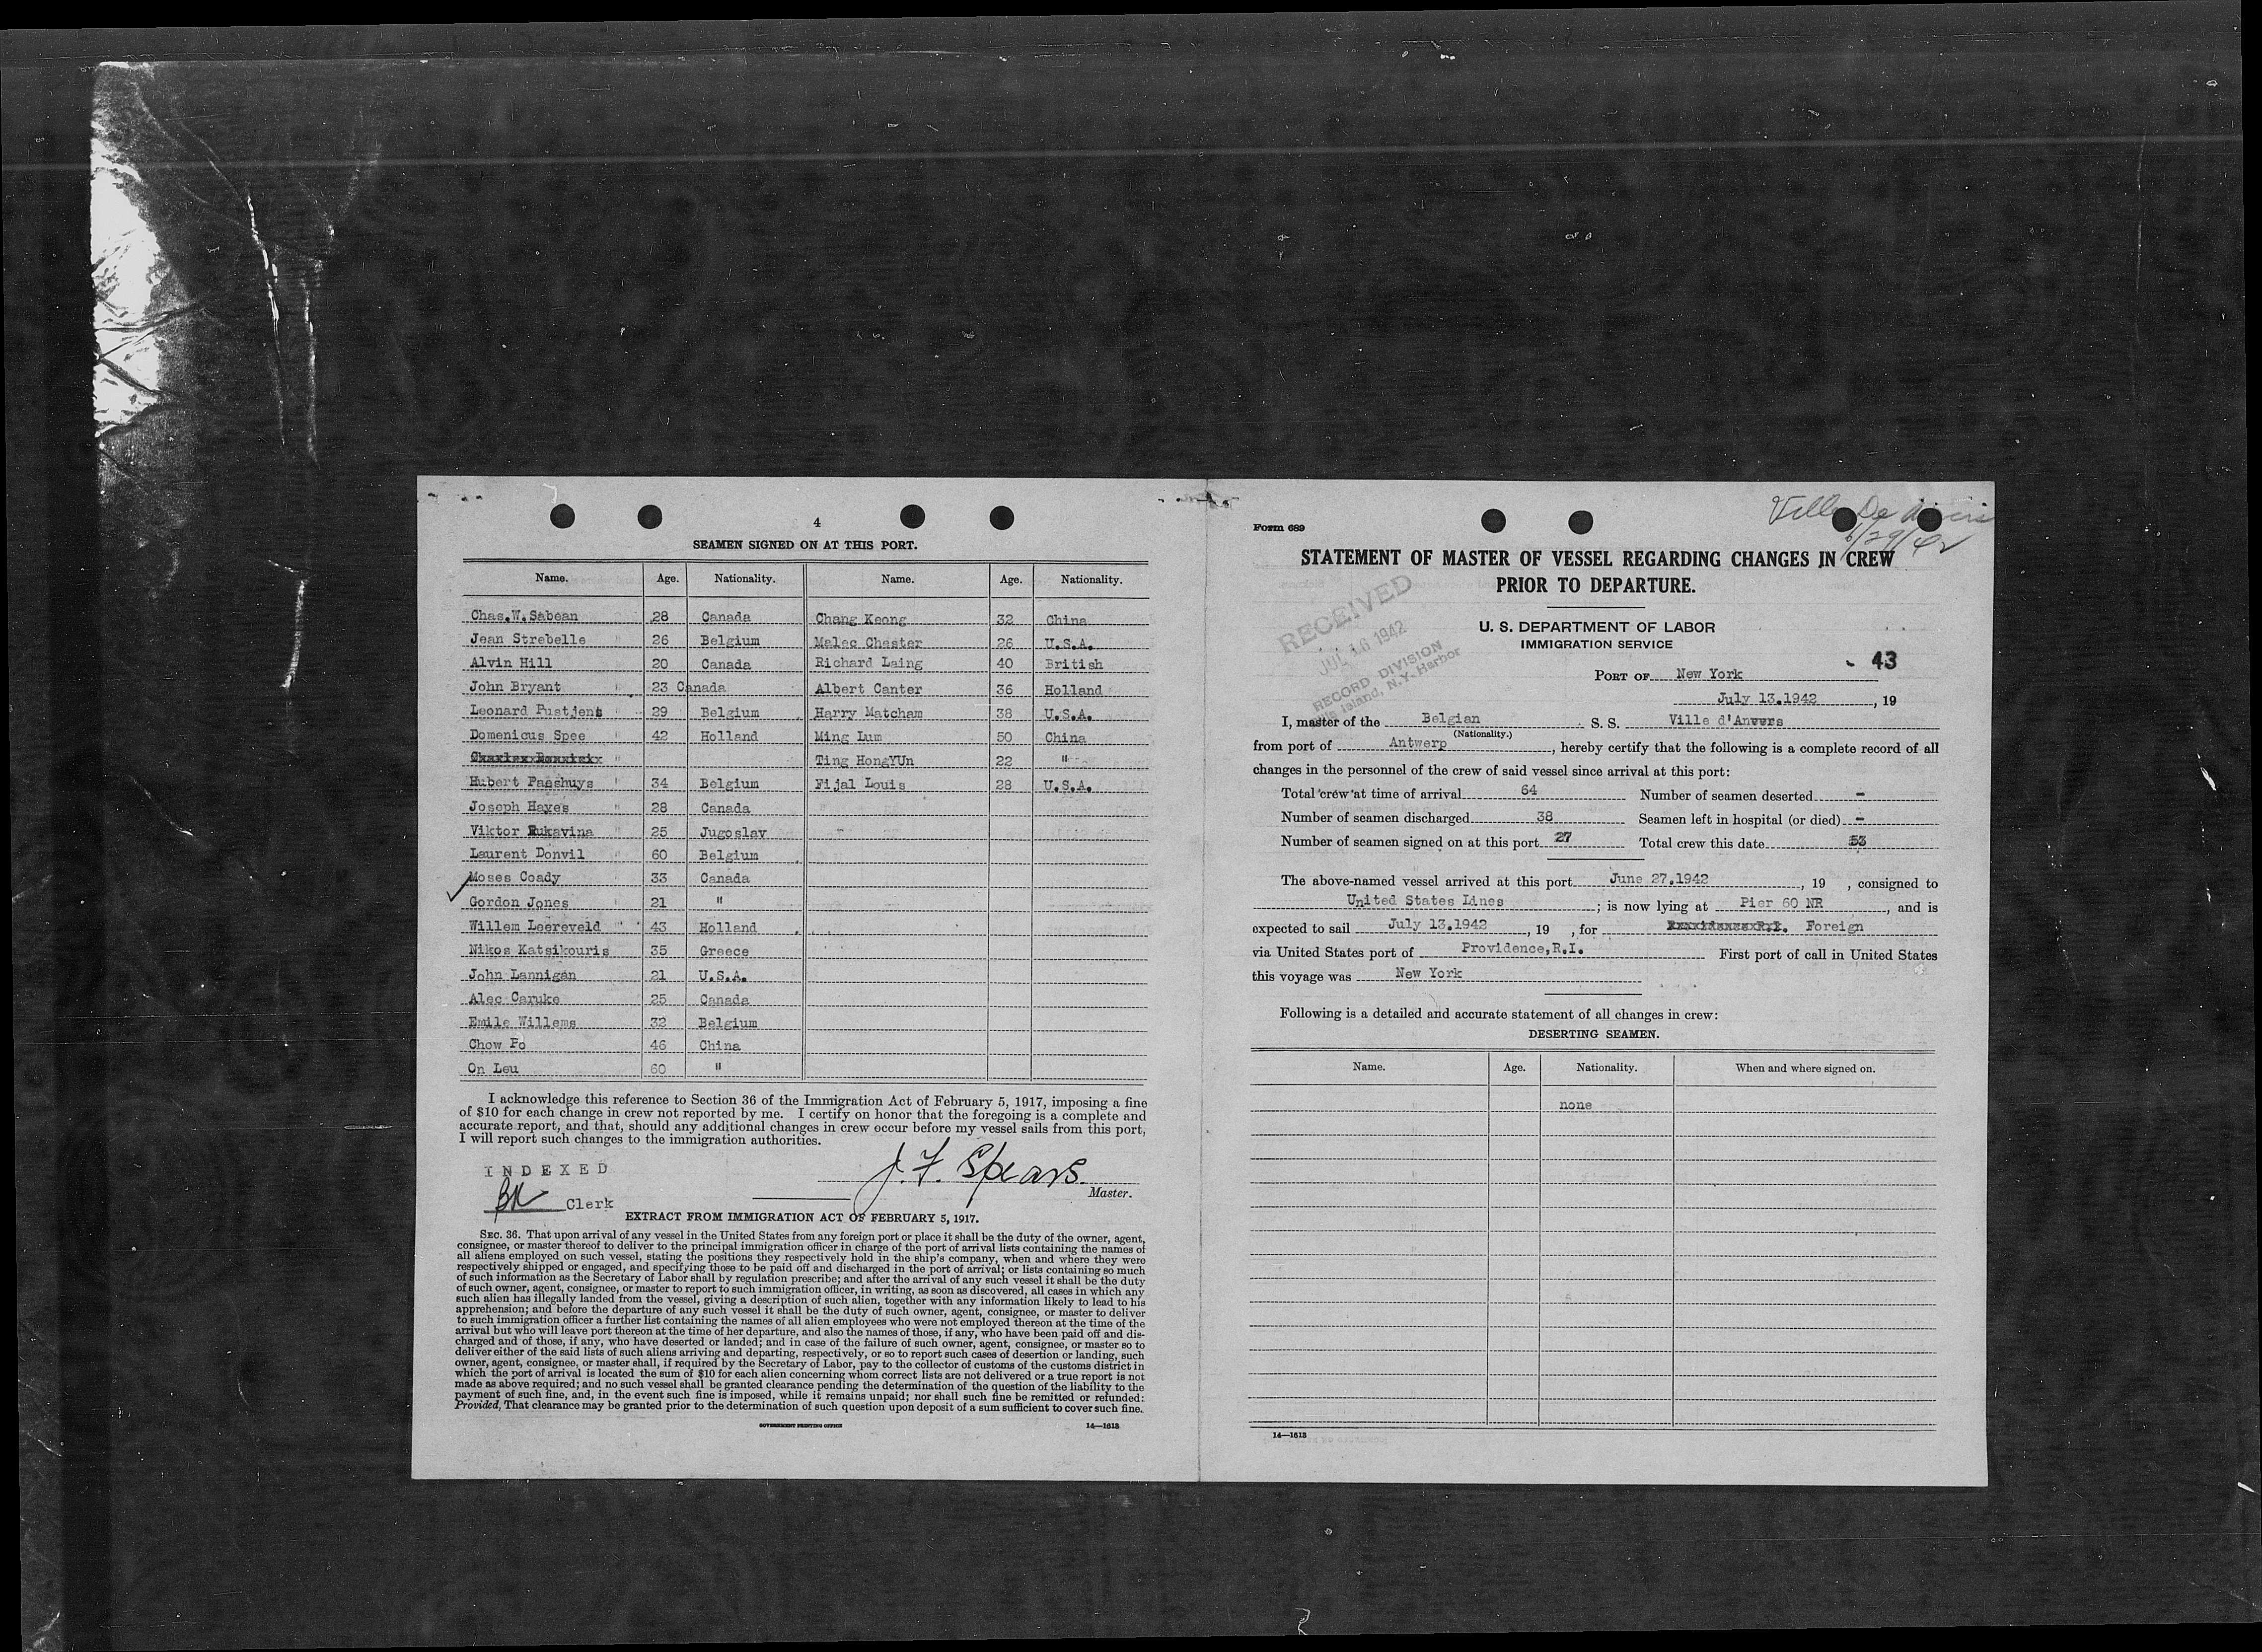 4
SEAMEN SIGNED ON AT THIS PORT.
Name. Age. Nationality. Name. Age. Nationality.
Chas.W.Sabean 28 Canada Chang Keong 32 China
Jean Strebelle " 26 Belgium Malec Chester 26 U.S.A.
Alvin Hill 20 Canada Richard Laing 40 British
John Bryant " 23 Canada Albert Canter 36 Holland
Leonard Pustjens " 29 Belgium Harry Matcham 38 U.S.A.
Domenicus Spee " 42 Holland Ming Lum 50 China
" Ting HongYUn 22 "
Hubert Paeshuys " 34 Belgium Fijal Louis 28 U.S.A.
Joseph Hayes " 28 Canada
Viktor Rukavina " 25 Jugoslav
Laurent Donvil " 60 Belgium
Moses Coady 33 Canada
Gordon Jones 21 "
Willem Leereveld " 43 Holland
Nikos Katsikouris 35 Greece
John Lannigan 21 U.S.A.
Alec Caruke 25 Canada
Emile Willems 32 Belgium
Chow Fo 46 China
On Leu 60 "
I acknowledge this reference to Section 36 of the Immigration Act of February 5, 1917, imposing a fine
of $10 for each change in crew not reported by me. I certify on honor that the foregoing is a complete and
accurate report, and that, should any additional changes in crew occur before my vessel sails from this port,
I will report such changes to the immigration authorities.
INDEXED
J. F. Spears.
Master.
Clerk
EXTRACT FROM IMMIGRATION ACT OF FEBRUARY 5, 1917.
SEC. 36. That upon arrival of any vessel in the United States from any foreign port or place it shall be the duty of the owner, agent,
consignee, or master thereof to deliver to the principal immigration officer in charge of the port of arrival lists containing the names of
all aliens employed on such vessel, stating the positions they respectively hold in the ship's company, when and where they were
respectively shipped or engaged, and specifying those to be paid off and discharged in the port of arrival; or lists containing so much
of such information as the Secretary of Labor shall by regulation prescribe; and after the arrival of any such vessel it shall be the duty
of such owner, agent, consignee, or master to report to such immigration officer, in writing, as soon as discovered, all cases in which any
such alien has illegally landed from the vessel, giving a description of such alien, together with any information likely to lead to his
apprehension; and before the departure of any such vessel it shall be the duty of such owner, agent, consignee, or master to deliver
to such immigration officer a further list containing the names of all alien employees who were not employed thereon at the time of the
arrival but who will leave port thereon at the time of her departure, and also the names of those, if any, who have been paid off and dis-
charged and of those, if any, who have deserted or landed; and in case of the failure of such owner, agent, consignee, or master so to
deliver either of the said lists of such aliens arriving and departing, respectively, or so to report such cases of desertion or landing, such
owner, agent, consignee, or master shall, if required by the Secretary of Labor, pay to the collector of customs of the customs district in
which the port of arrival is located the sum of $10 for each alien concerning whom correct lists are not delivered or a true report is not
made as above required; and no such vessel shall be granted clearance pending the determination of the question of the liability to the
payment of such fine, and, in the event such fine is imposed, while it remains unpaid; nor shall such fine be remitted or refunded:
Provided, That clearance may be granted prior to the determination of such question upon deposit of a sum sufficient to cover such fine.
GOVERNMENT PRINTING OFFICE 14—1613
Form 689
Ville
6/29/42
STATEMENT OF MASTER OF VESSEL REGARDING CHANGES IN CREW
PRIOR TO DEPARTURE.
U. S. DEPARTMENT OF LABOR
IMMIGRATION SERVICE
RECEIVED
JUL 16 1942
RECORD DIVISION
Island, N.Y. Harbor
43
PORT OF New York
July 13.1942, 19
I, master of the Belgian S. S. Ville d'Anvers
(Nationality.)
from port of Antwerp, hereby certify that the following is a complete record of all
changes in the personnel of the crew of said vessel since arrival at this port:
Total crew at time of arrival 64 Number of seamen deserted -
Number of seamen discharged 38 Seamen left in hospital (or died) -
Number of seamen signed on at this port 27 Total crew this date 53
The above-named vessel arrived at this port June 27.1942, 19 , consigned to
United States Lines; is now lying at Pier 60 NR, and is
expected to sail July 13.1942, 19 , for Foreign
via United States port of Providence,R.I. First port of call in United States
this voyage was New York
Following is a detailed and accurate statement of all changes in crew:
DESERTING SEAMEN.
Name. Age. Nationality. When and where signed on.
none
14—1613